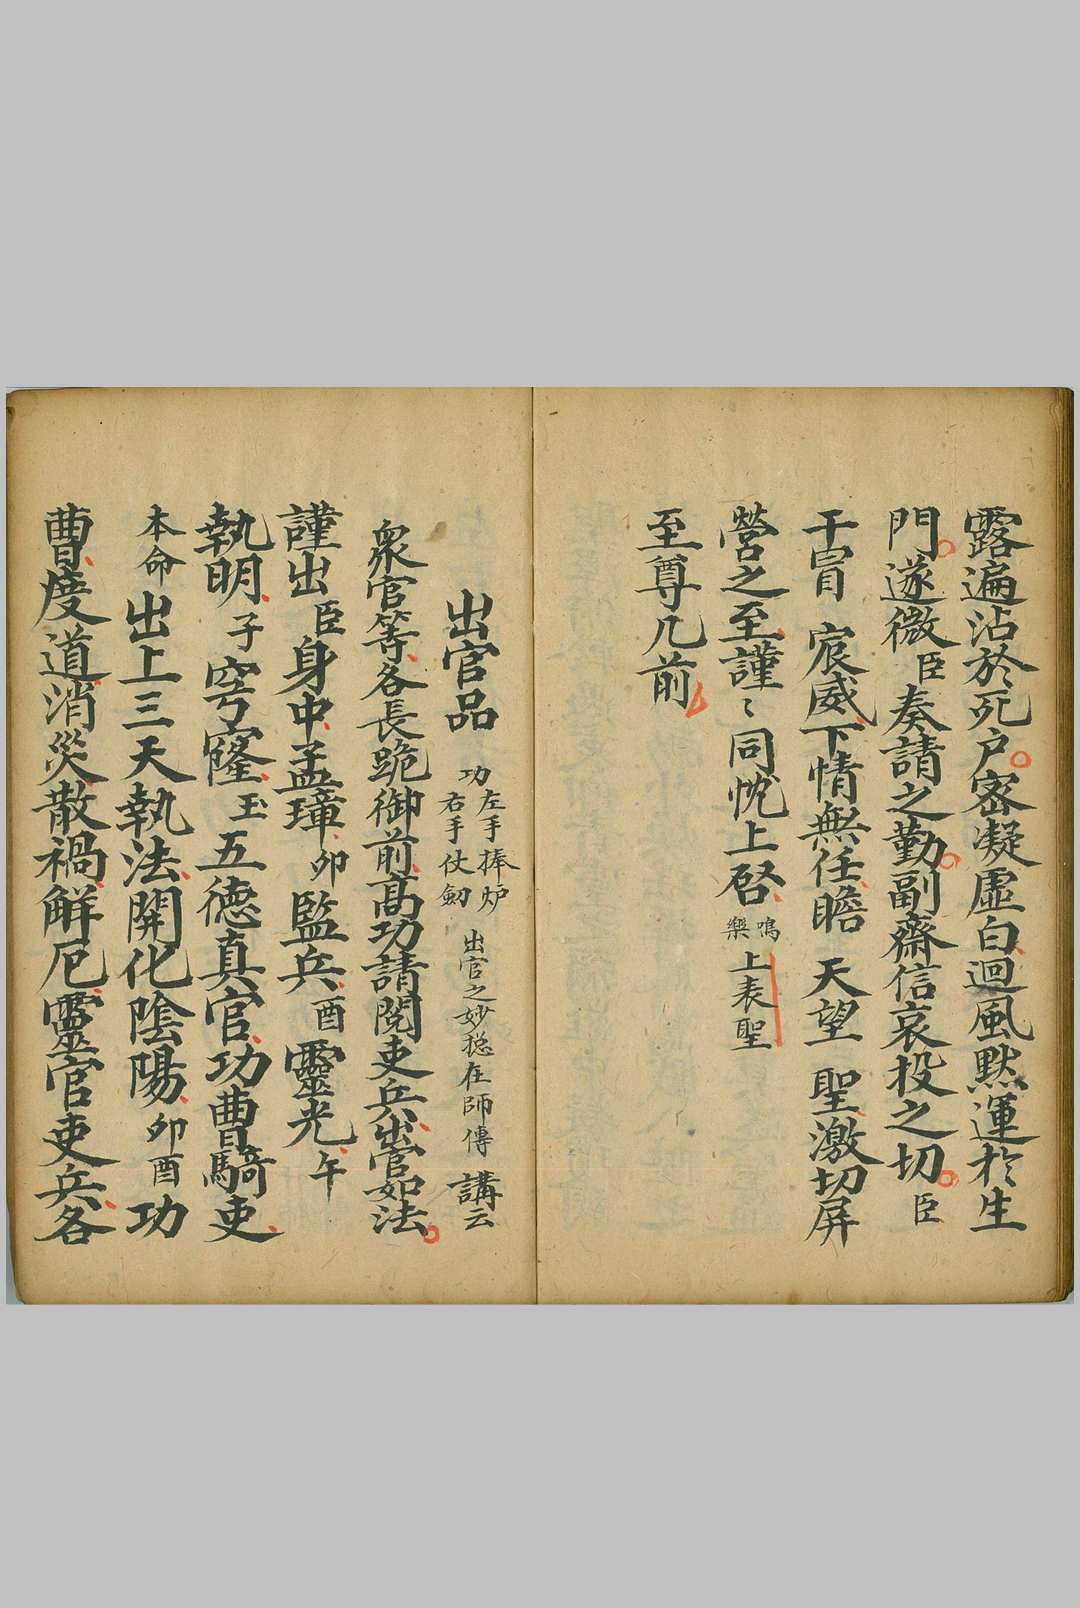 露遍沾於死户密凝虛白迴風默運於生
門遂微臣奏請之勤副齋信哀投之切臣
干冒 宸威下情無任瞻 天望 聖激切屏
營之至謹〻同悅上啓 鳴樂 上表聖
至尊几前
出官品 功左手捧炉右手仗劍 出官之妙捴在師傳 講云
衆官等各長跪御前高功請閱吏兵出官如法
謹出臣身中孟璋卯監兵酉靈光午
執明子穹窿玉五德真官功曹騎吏
本命 出上三天執法開化陰陽卯酉功
曹度道消災散禍解厄靈官吏兵各